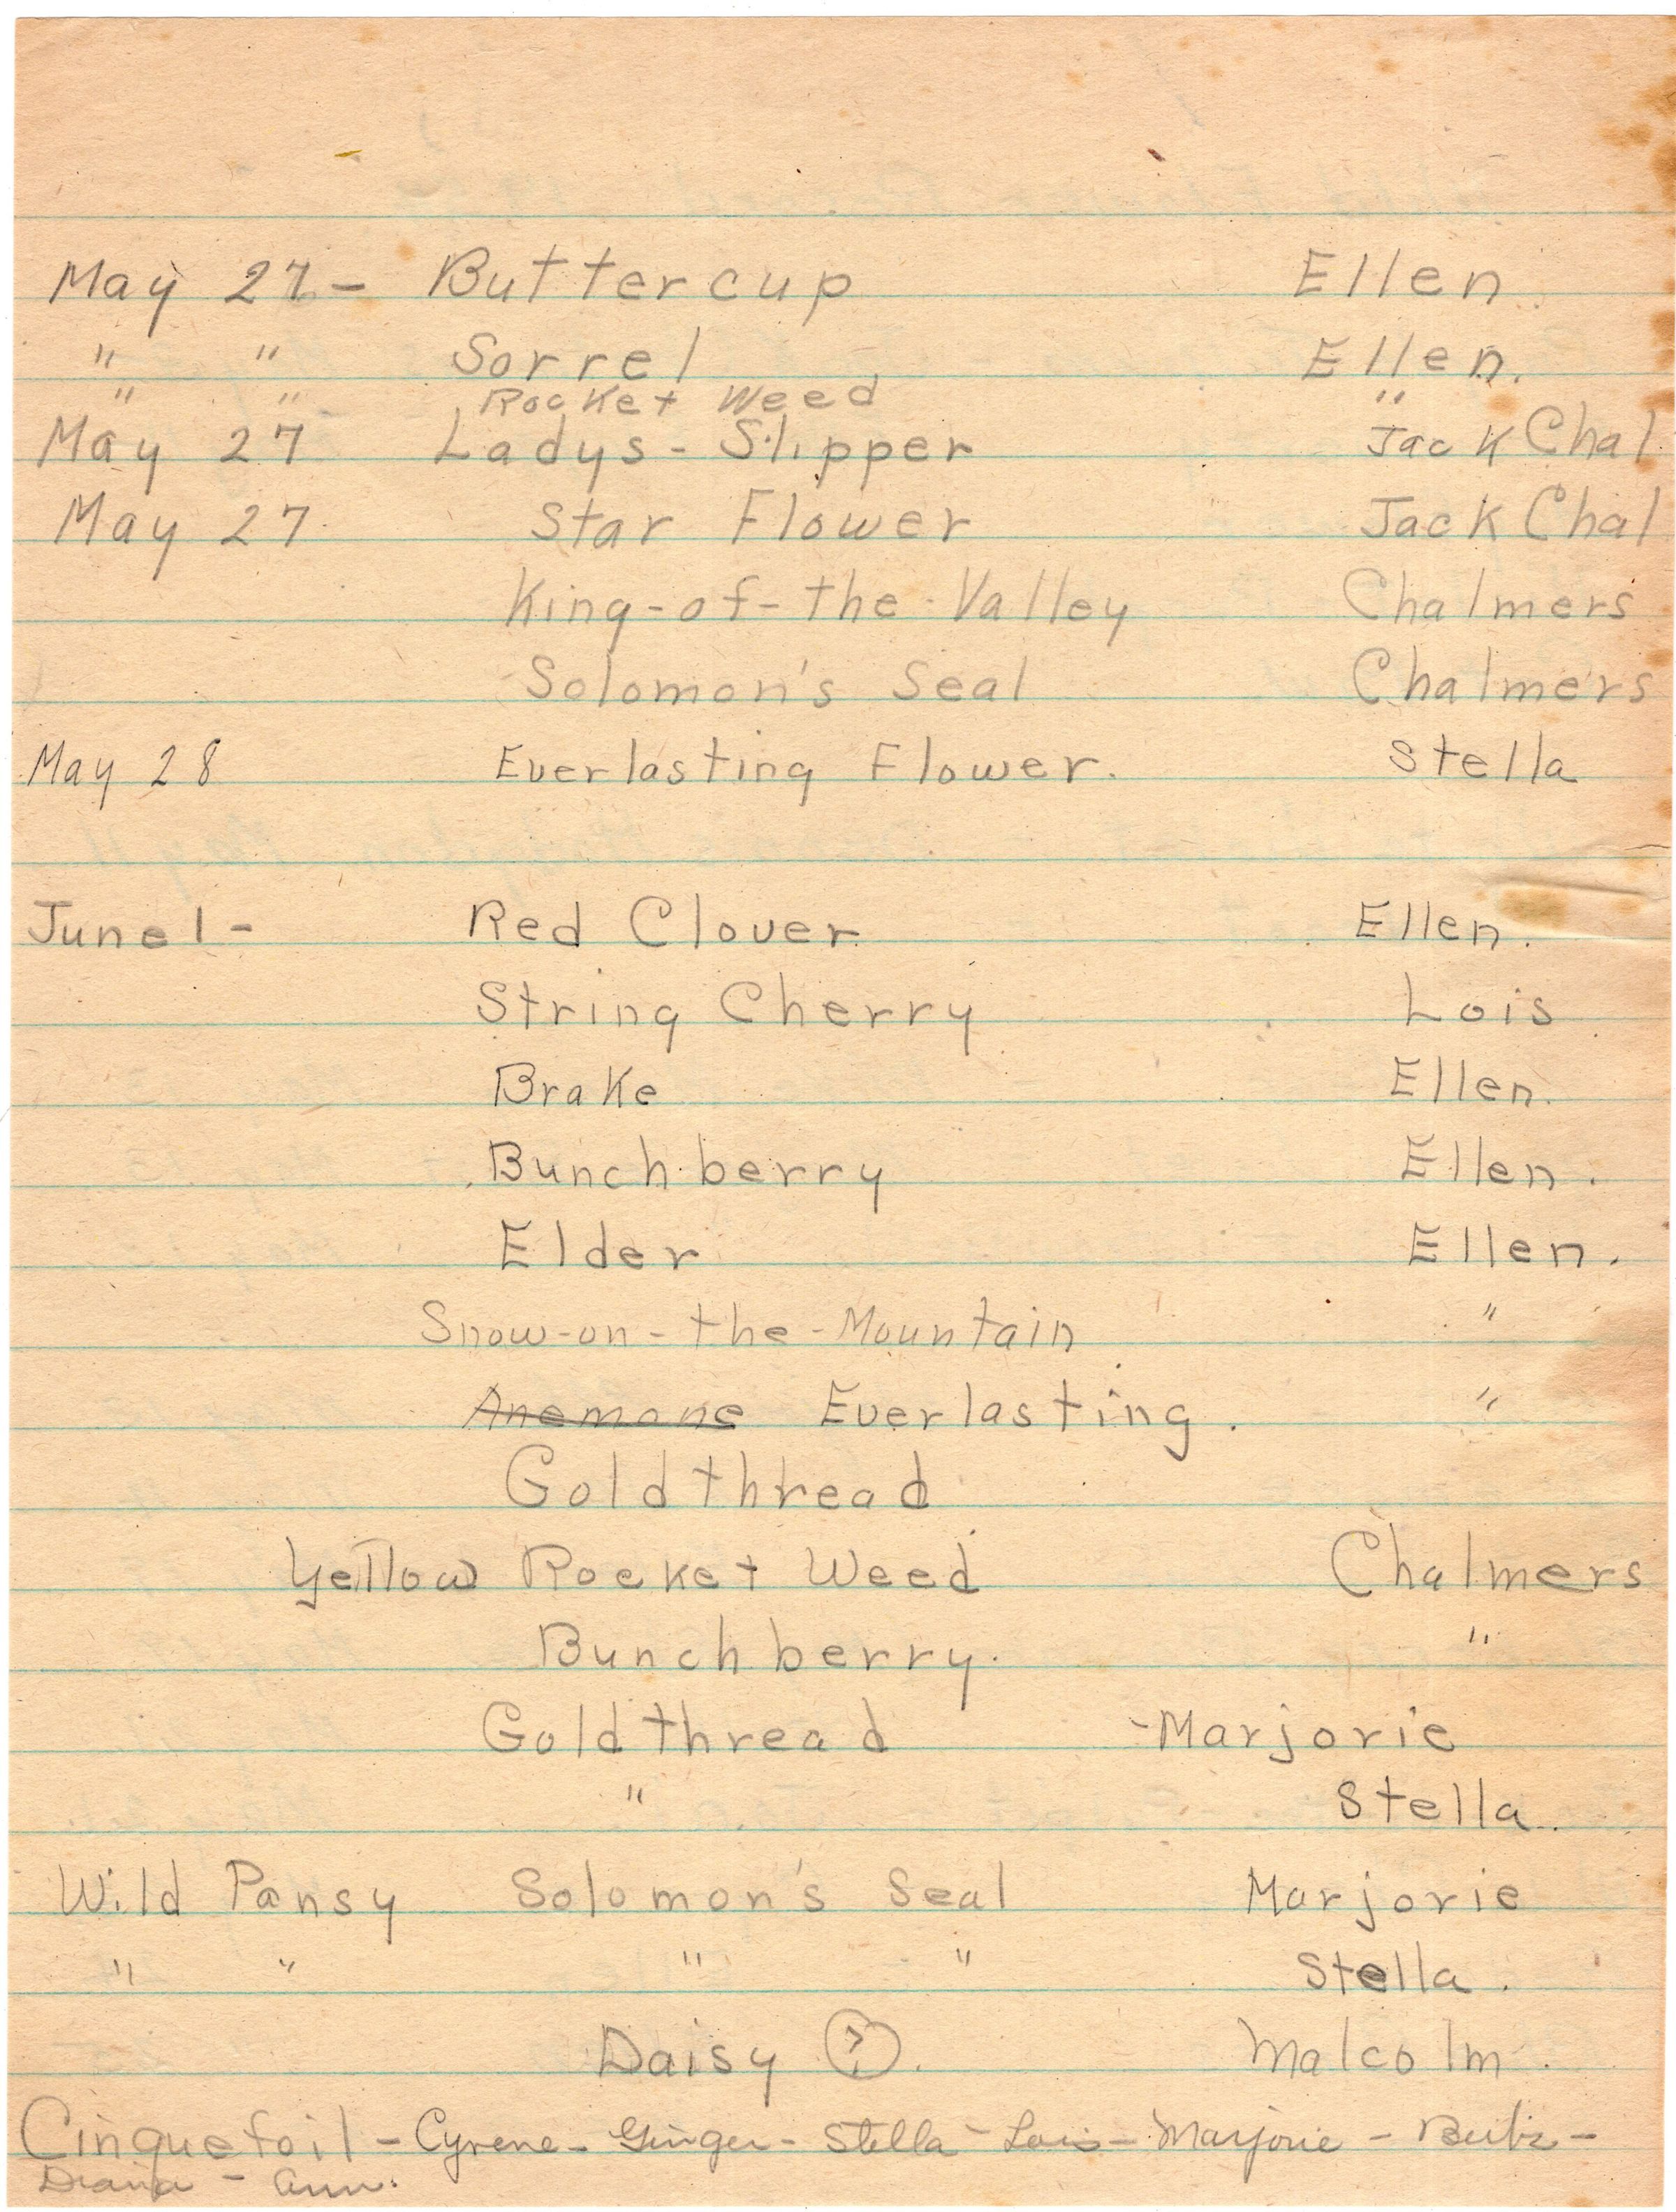 May 27 - Buttercup Ellen
" " Sorrel Ellen.
" " Rocket Weed "
May 27 Ladys-Slipper Jack Chal
May 27 Star Flower Jack Chal
King-of-the-Valley Chalmers
Solomon's Seal Chalmers
May 28 Everlasting Flower. Stella
June 1 - Red Clover Ellen.
String Cherry Lois
Brake Ellen.
Bunchberry Ellen.
Elder Ellen.
Snow-on-the-Mountain "
Anemone Everlasting. "
Goldthread
Yellow Rocket Weed Chalmers
Bunchberry. "
Goldthread - Marjorie
" Stella.
Wild Pansy Solomon's Seal Marjorie
" " " " Stella.
Daisy ?. Malcolm.
Cinquefoil - Cyrene - Ginger - Stella - Lois - Marjorie - -
Diana - Ann.